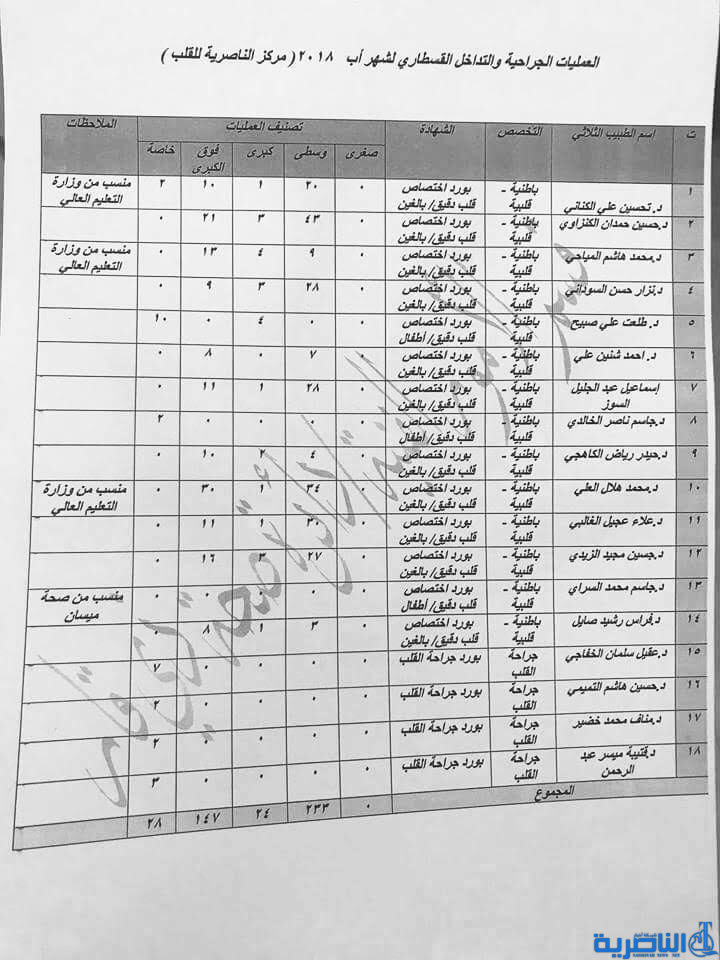 العمليات الجراحية والتداخل القسطاري لشهر أب ٢٠١٨ ( مركز الناصرية للقلب )
ت اسم الطبيب الثلاثي التخصص الشهادة تصنيف العمليات الملاحظات
صغرى وسطى كبرى فوق الكبرى خاصة
١ د. تحسين علي الكناني باطنية - قلبية بورد اختصاص قلب دقيق/ بالغين ٠ ٢٠ ١ ١٠ ٢ منسب من وزارة التعليم العالي
٢ د.حسين حمدان الكنزاوي باطنية - قلبية بورد اختصاص قلب دقيق/ بالغين ٠ ٤٣ ٣ ٢١ ٠
٣ د.محمد هاشم المياحي باطنية - قلبية بورد اختصاص قلب دقيق/ بالغين ٠ ٩ ٤ ١٣ ٠ منسب من وزارة التعليم العالي
٤ د.نزار حسن السوداني باطنية - قلبية بورد اختصاص قلب دقيق/ بالغين ٠ ٢٨ ٣ ٩ ٠
٥ د. طلعت علي صبيح باطنية - قلبية بورد اختصاص قلب دقيق/ أطفال ٠ ٠ ٤ ٠ ١٠
٦ د. احمد شنين علي باطنية - قلبية بورد اختصاص قلب دقيق/ بالغين ٠ ٧ ٠ ٨ ٠
٧ إسماعيل عبد الجليل السوز باطنية - قلبية بورد اختصاص قلب دقيق/ بالغين ٠ ٢٨ ١ ١١ ٠
٨ د.جاسم ناصر الخالدي باطنية - قلبية بورد اختصاص قلب دقيق/ أطفال ٠ ٠ ٠ ٠ ٢
٩ د.حيدر رياض الكاهجي باطنية - قلبية بورد اختصاص قلب دقيق/ بالغين ٠ ٤ ٢ ١٠ ٠
١٠ د.محمد هلال العلي باطنية - قلبية بورد اختصاص قلب دقيق/ بالغين ٠ ٣٤ ٣٠ ٠ منسب من وزارة التعليم العالي
١١ د.علاء عجيل الغالبي باطنية - قلبية بورد اختصاص قلب دقيق/ بالغين ٠ ٣٠ ١ ١١ ٠
١٢ د.حسين مجيد الزيدي باطنية - قلبية بورد اختصاص قلب دقيق/ بالغين ٠ ٢٧ ٣ ١٦ ٠
١٣ د.جاسم محمد السراي باطنية - قلبية بورد اختصاص قلب دقيق/ أطفال ٠ ٠ ٠ ٠ ٠ منسب من صحة ميسان
١٤ د.فراس رشيد صايل باطنية - قلبية بورد اختصاص قلب دقيق/ بالغين ٠ ٣ ١ ٨ ٠
١٥ د.عقيل سلمان الخفاجي جراحة القلب بورد جراحة القلب ٠ ٠ ٠ ٠ ٧
١٦ د.حسين هاشم التميمي جراحة القلب بورد جراحة القلب ٠ ٠ ٠ ٠ ٢
١٧ د.مناف محمد خضير جراحة القلب بورد جراحة القلب ٠ ٠ ٠ ٠ ٢
١٨ د.قتيبة ميسر عبد الرحمن جراحة القلب بورد جراحة القلب ٠ ٠ ٠ ٠ ٣
المجموع ٠ ٢٣٣ ٢٤ ١٤٧ ٢٨
شبكة أخبار
الناصرية
NASIRIYAH NEWS NET